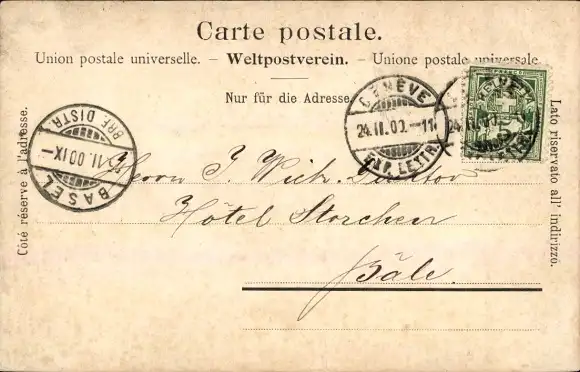 Carte postale.
Union postale universelle. – Weltpostverein. – Unione postale universale
Nur für die Adresse
Côté réservé à l'adresse.
Lato riservato all' indirizzo.
HELVETIA
GENÈVE
24.II.00.-11
EXP. LETTR.
BASEL
II.00 IX-
BRE DISTR.
Herrn J.
Hôtel Storchen
Bâle.